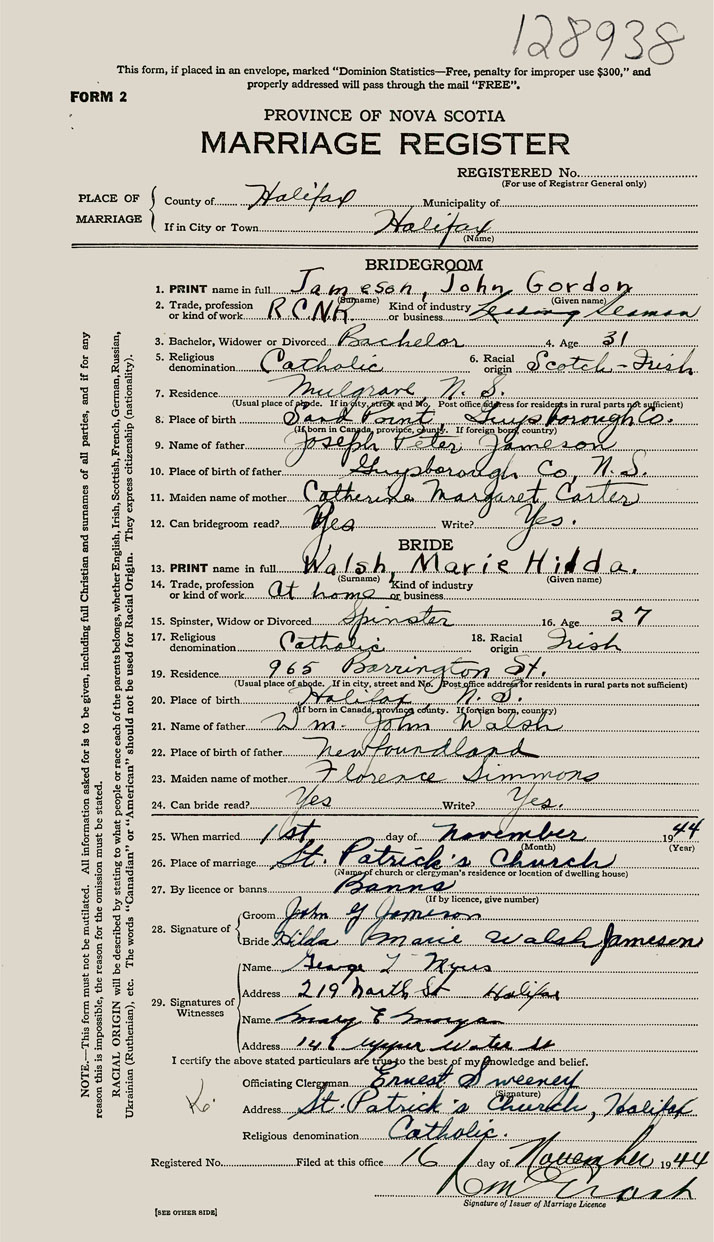 128938
This form, if placed in an envelope, marked "Dominion Statistics—Free, penalty for improper use $300," and
properly addressed will pass through the mail "FREE".
FORM 2
PROVINCE OF NOVA SCOTIA
MARRIAGE REGISTER
REGISTERED No.
(For use of Registrar General only)
PLACE OF MARRIAGE
County of Halifax Municipality of
If in City or Town Halifax
(Name)
BRIDEGROOM
1. PRINT name in full Jameson, John Gordon
(Surname) (Given name)
2. Trade, profession or kind of work R.C.N.R. Kind of industry or business Leading Seaman
3. Bachelor, Widower or Divorced Bachelor 4. Age 31
5. Religious denomination Catholic 6. Racial origin Scotch-Irish
7. Residence Mulgrave, N.S.
(Usual place of abode. If in city, street and No. Post office address for residents in rural parts not sufficient)
8. Place of birth Sand Point, Guysborough Co.
(If born in Canada, province, county. If foreign born, country)
9. Name of father Joseph Peter Jameson
10. Place of birth of father Guysborough Co, N.S.
11. Maiden name of mother Catherine Margaret Carter
12. Can bridegroom read? Yes Write? Yes.
BRIDE
13. PRINT name in full Walsh, Marie Hilda.
(Surname) (Given name)
14. Trade, profession or kind of work At home Kind of industry or business
15. Spinster, Widow or Divorced Spinster 16. Age 27
17. Religious denomination Catholic 18. Racial origin Irish
19. Residence 965 Barrington St.
(Usual place of abode. If in city, street and No. Post office address for residents in rural parts not sufficient)
20. Place of birth Halifax, N.S.
(If born in Canada, province county. If foreign born, country)
21. Name of father Wm. John Walsh
22. Place of birth of father Newfoundland
23. Maiden name of mother Florence Simmons
24. Can bride read? Yes Write? Yes.
25. When married 1st day of November 1944
(Month) (Year)
26. Place of marriage St. Patrick's Church
(Name of church or clergyman's residence or location of dwelling house)
27. By licence or banns Banns
(If by licence, give number)
28. Signature of
Groom John G Jameson
Bride Hilda Marie Walsh Jameson
29. Signatures of Witnesses
Name George L Myers
Address 219 North St Halifax
Name Mary E Morgan
Address 146 Upper Water St
I certify the above stated particulars are true to the best of my knowledge and belief.
Officiating Clergyman Ernest Sweeney
(Signature)
Address St. Patrick's Church, Halifax
Religious denomination Catholic.
Registered No. Filed at this office 16 day of November 1944
Signature of Issuer of Marriage Licence
[SEE OTHER SIDE]
NOTE.—This form must not be mutilated. All information asked for is to be given, including full Christian and surnames of all parties, and if for any
reason this is impossible, the reason for the omission must be stated.
RACIAL ORIGIN will be described by stating to what people or race each of the parents belongs, whether English, Irish, Scottish, French, German, Russian,
Ukrainian (Ruthenian), etc. The words "Canadian" or "American" should not be used for Racial Origin. They express citizenship (nationality).